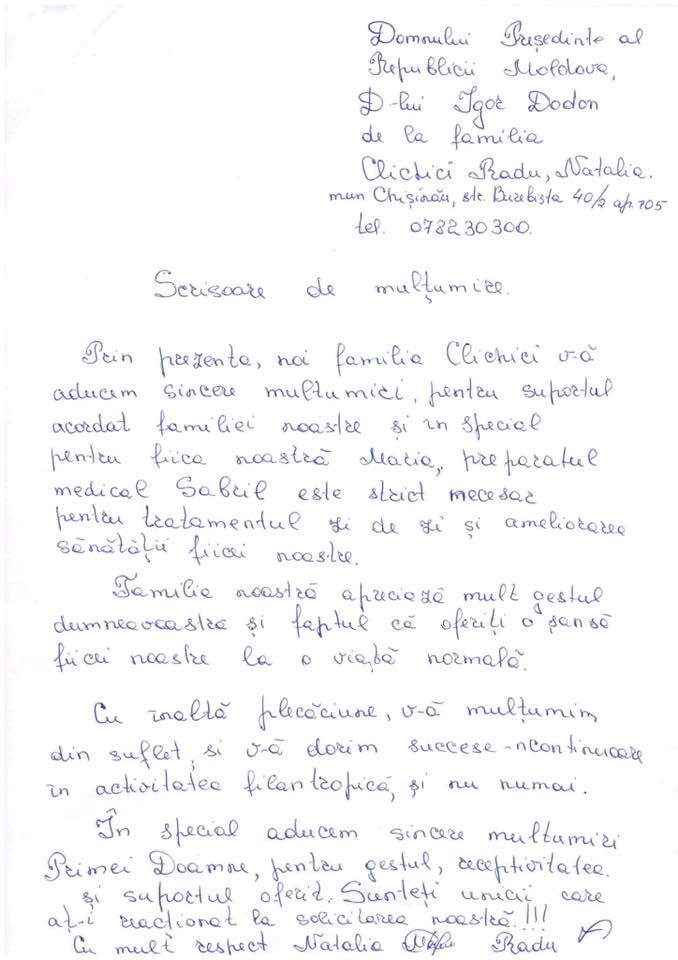 Domnului Președinte al
Republicii Moldova,
D-lui Igor Dodon
de la familia
Clichici Radu, Natalia.
mun Chișinău, str. Burebista 40/2 ap. 105
tel. 078230300.
Scrisoare de mulțumire.
Prin prezenta, noi familia Clichici v-ă
aducem sincere multumiri, pentru suportul
acordat familiei noastre și in special
pentru fiica noastră Maria, preparatul
medical Sabril este strict necesar
pentru tratamentul zi de zi și ameliorarea
sănătății fiicei noastre.
Familia noastră apreciază mult gestul
dumneavoastră și faptul că oferiți o șansă
fiicei noastre la o viață normală.
Cu înaltă plecăciune, v-ă mulțumim
din suflet, si v-ă dorim succese -ncontinuare
în activitatea filantropică, și nu numai.
În special aducem sincere multumiri
Primei Doamne, pentru gestul, receptivitatea.
și suportul oferit. Sunteți unicii care
aț-i reacționat la solicitarea noastră.!!!
Cu mult respect Natalia Radu